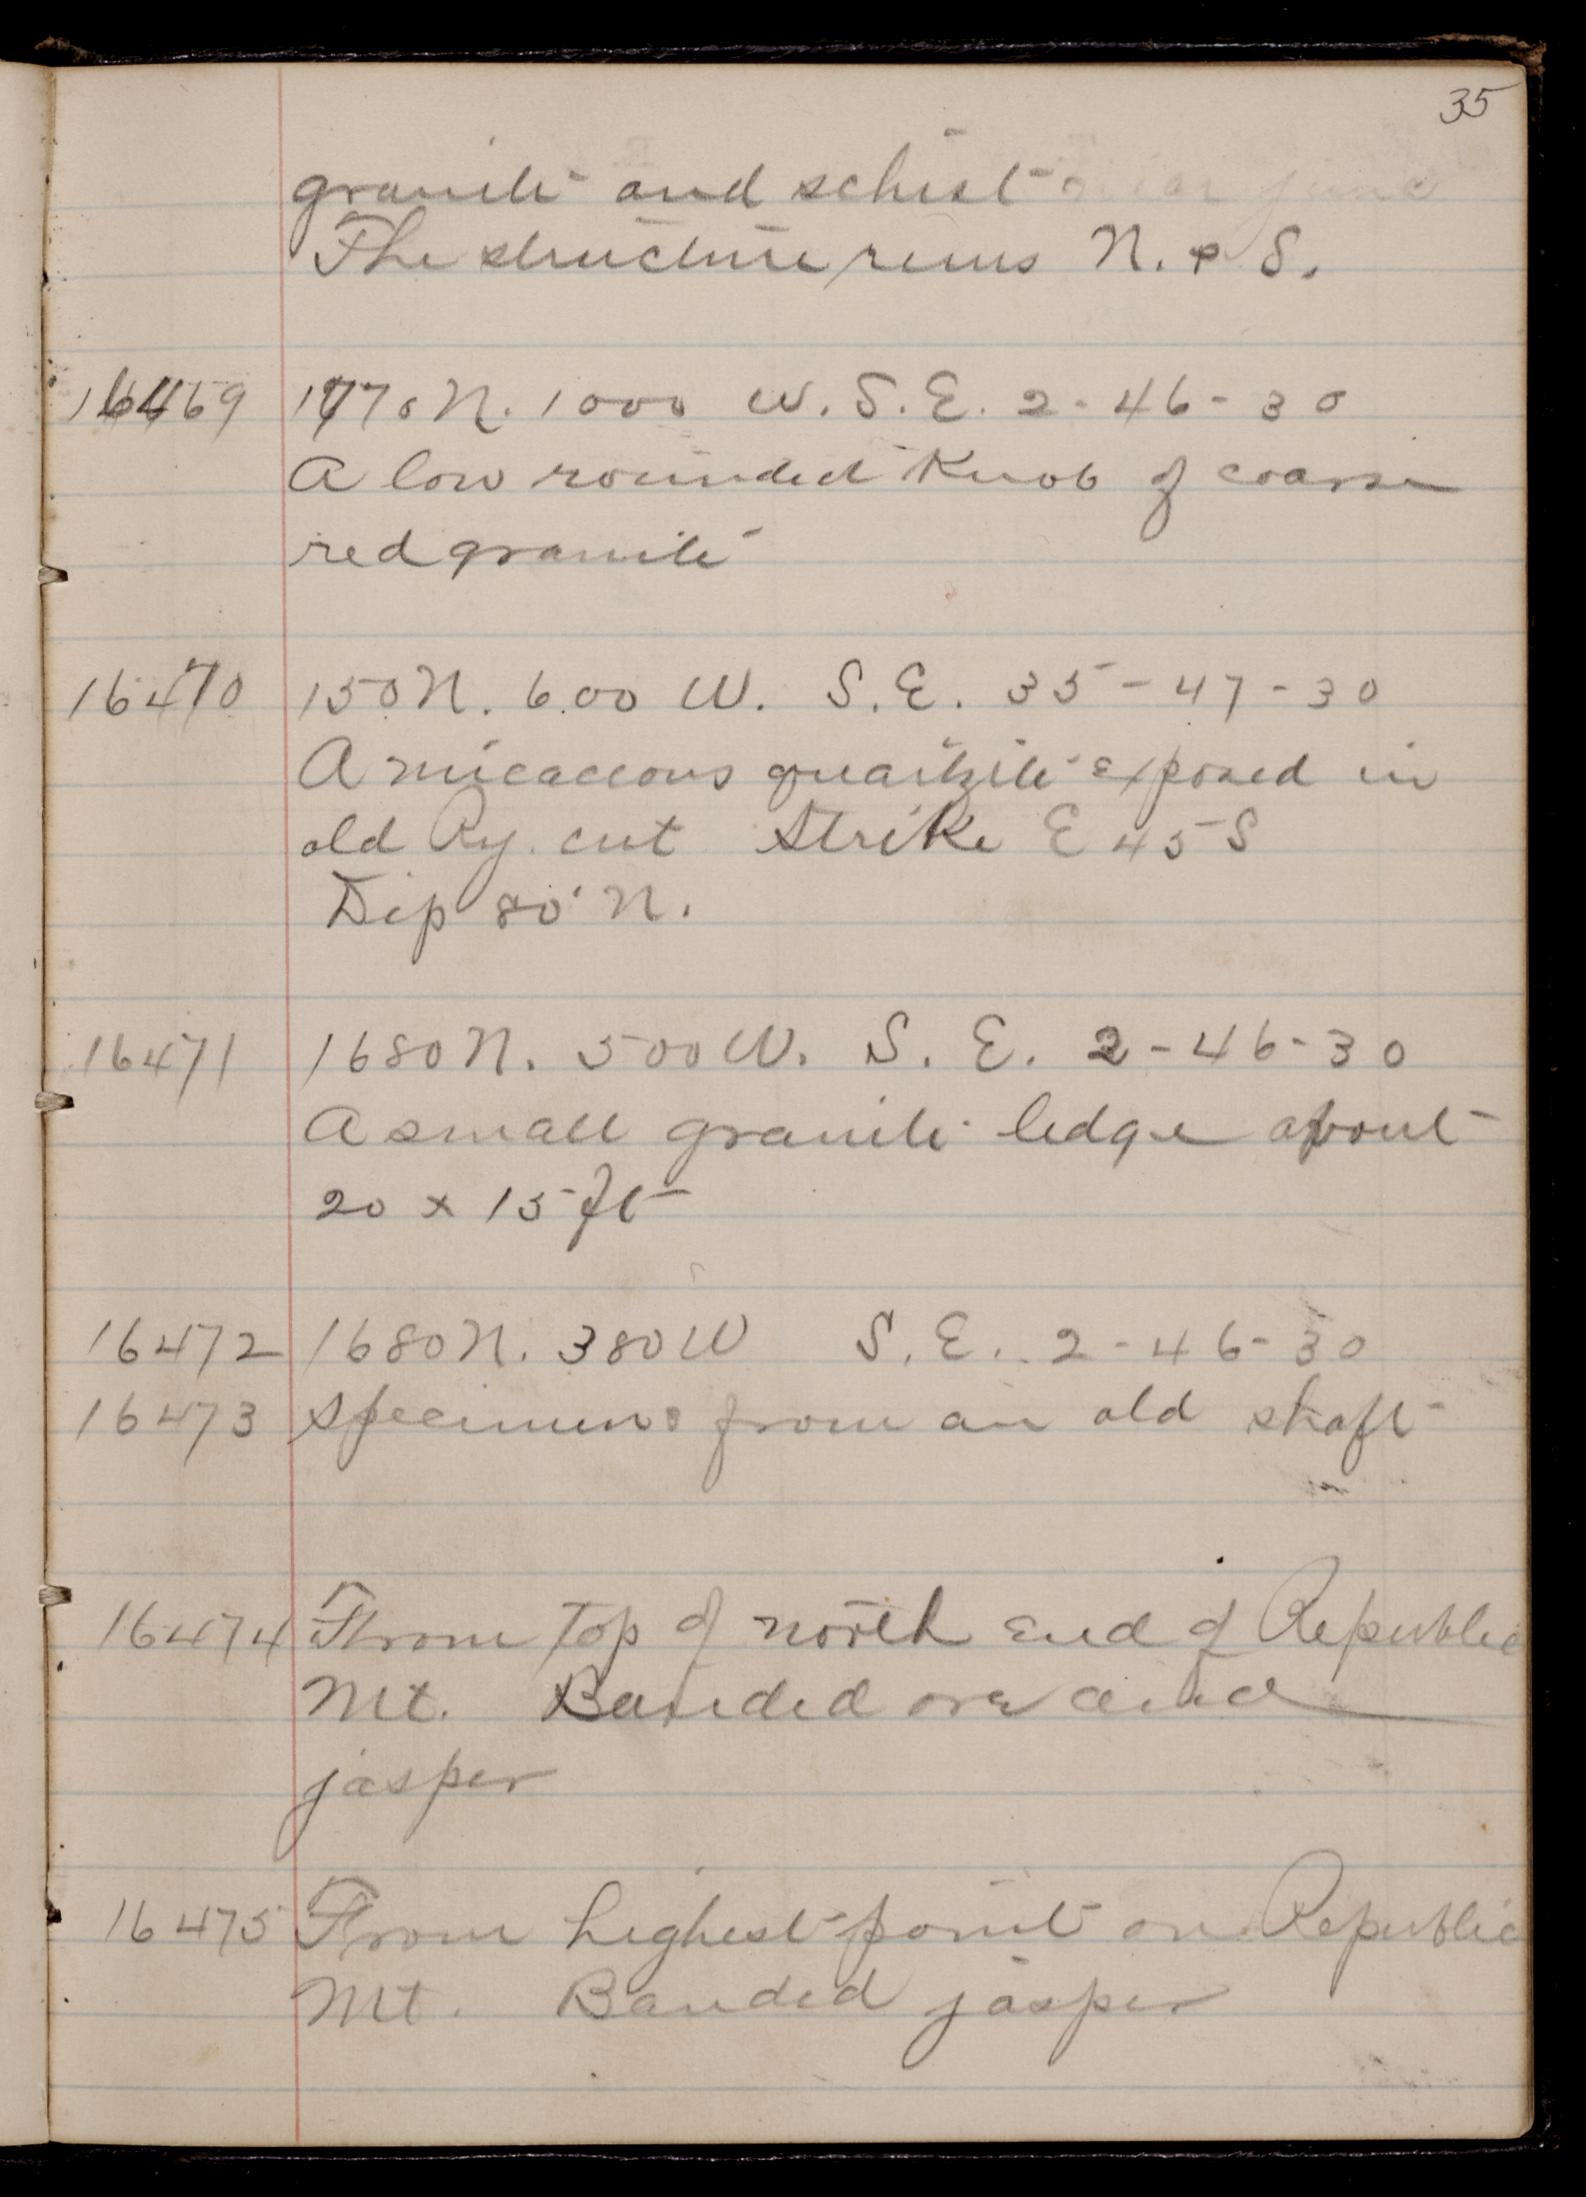 35
granite and schist
The structure runs N. & S.
16469 1770 N. 1000 W. S. E. 2-46-30
A low rounded Knob of coarse
red granite
16470 150 N. 600 W. S. E. 35-47-30
A micaceous quartzite exposed in
old Ry. cut Strike E 45 S
Dip 80° N.
16471 1680 N. 500 W. S. E. 2-46-30
A small granite ledge about
20 x 15 ft
16472 1680 N. 380 W S. E. 2-46-30
16473 specimens from an old shaft
16474 From top of north end of Republic
Mt. Banded ore and
jasper
16475 From highest point on Republic
Mt. Banded jasper